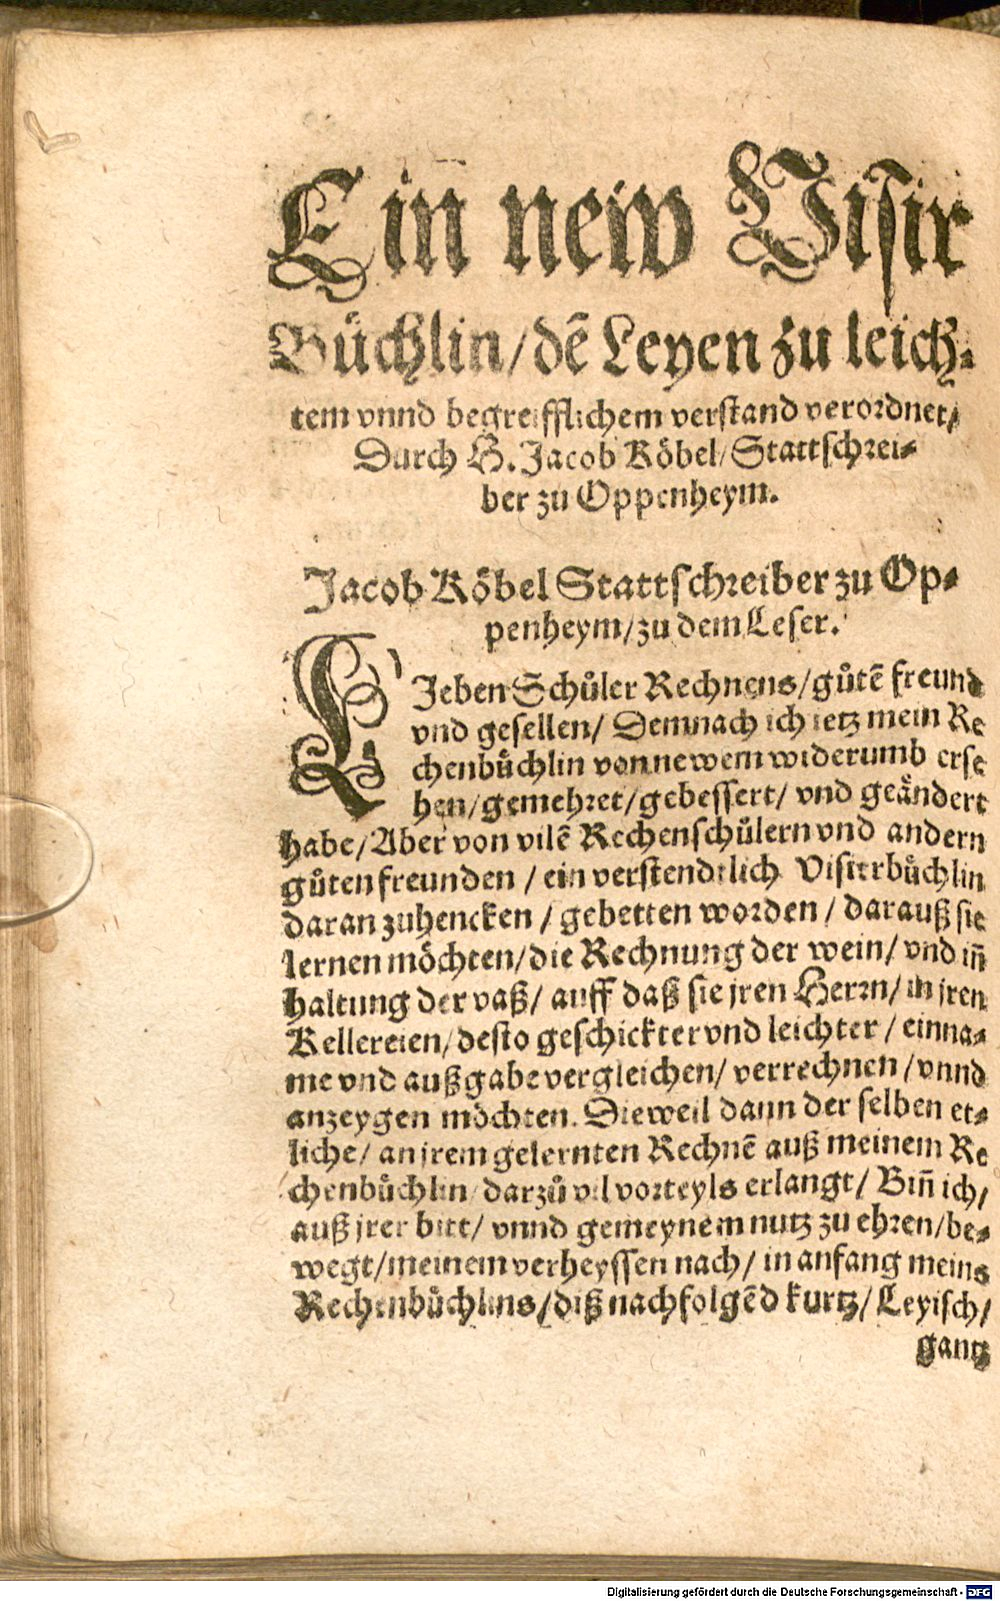 Ein new Visir
Büchlin/ dē Leyen zu leich⸗
tem vnnd begreifflichem verstand verordnet/
Durch H. Jacob Köbel/ Stattschrei⸗
ber zu Oppenheym.
Jacob Köbel Stattschreiber zu Op⸗
penheym/ zu dem Leser.
LJeben Schůler Rechnens/ gůtē freund
vnd gesellen/ Demnach ich ietz mein Re
chenbůchlin von newem widerumb erse
hen/ gemehret/ gebessert/ vnd geändert
habe/ Aber von vilē Rechenschůlern vnd andern
gůten freunden / ein verstendtlich Visierbůchlin
daran zuhencken / gebetten worden / darauß sie
lernen möchten/ die Rechnung der wein/ vnd iñ
haltung der vaß/ auff daß sie jren Herrn/ in jren
Kellereien/ desto geschickter vnd leichter / einna⸗
me vnd außgabe vergleichen/ verrechnen / vnnd
anzeygen möchten. Dieweil dann der selben et⸗
liche/ an jrem gelernten Rechnē auß meinem Re
chenbůchlin/ darzů vil vorteyls erlangt/ Biñ ich/
auß jrer bitt/ vnnd gemeynem nutz zu ehren/ be⸗
wegt/ meinem verheyssen nach/ in anfang meins
Rechenbůchlins/ diß nachfolgēd kurtz/ Leyisch/
gantz
Digitalisierung gefördert durch die Deutsche Forschungsgemeinschaft - DFG